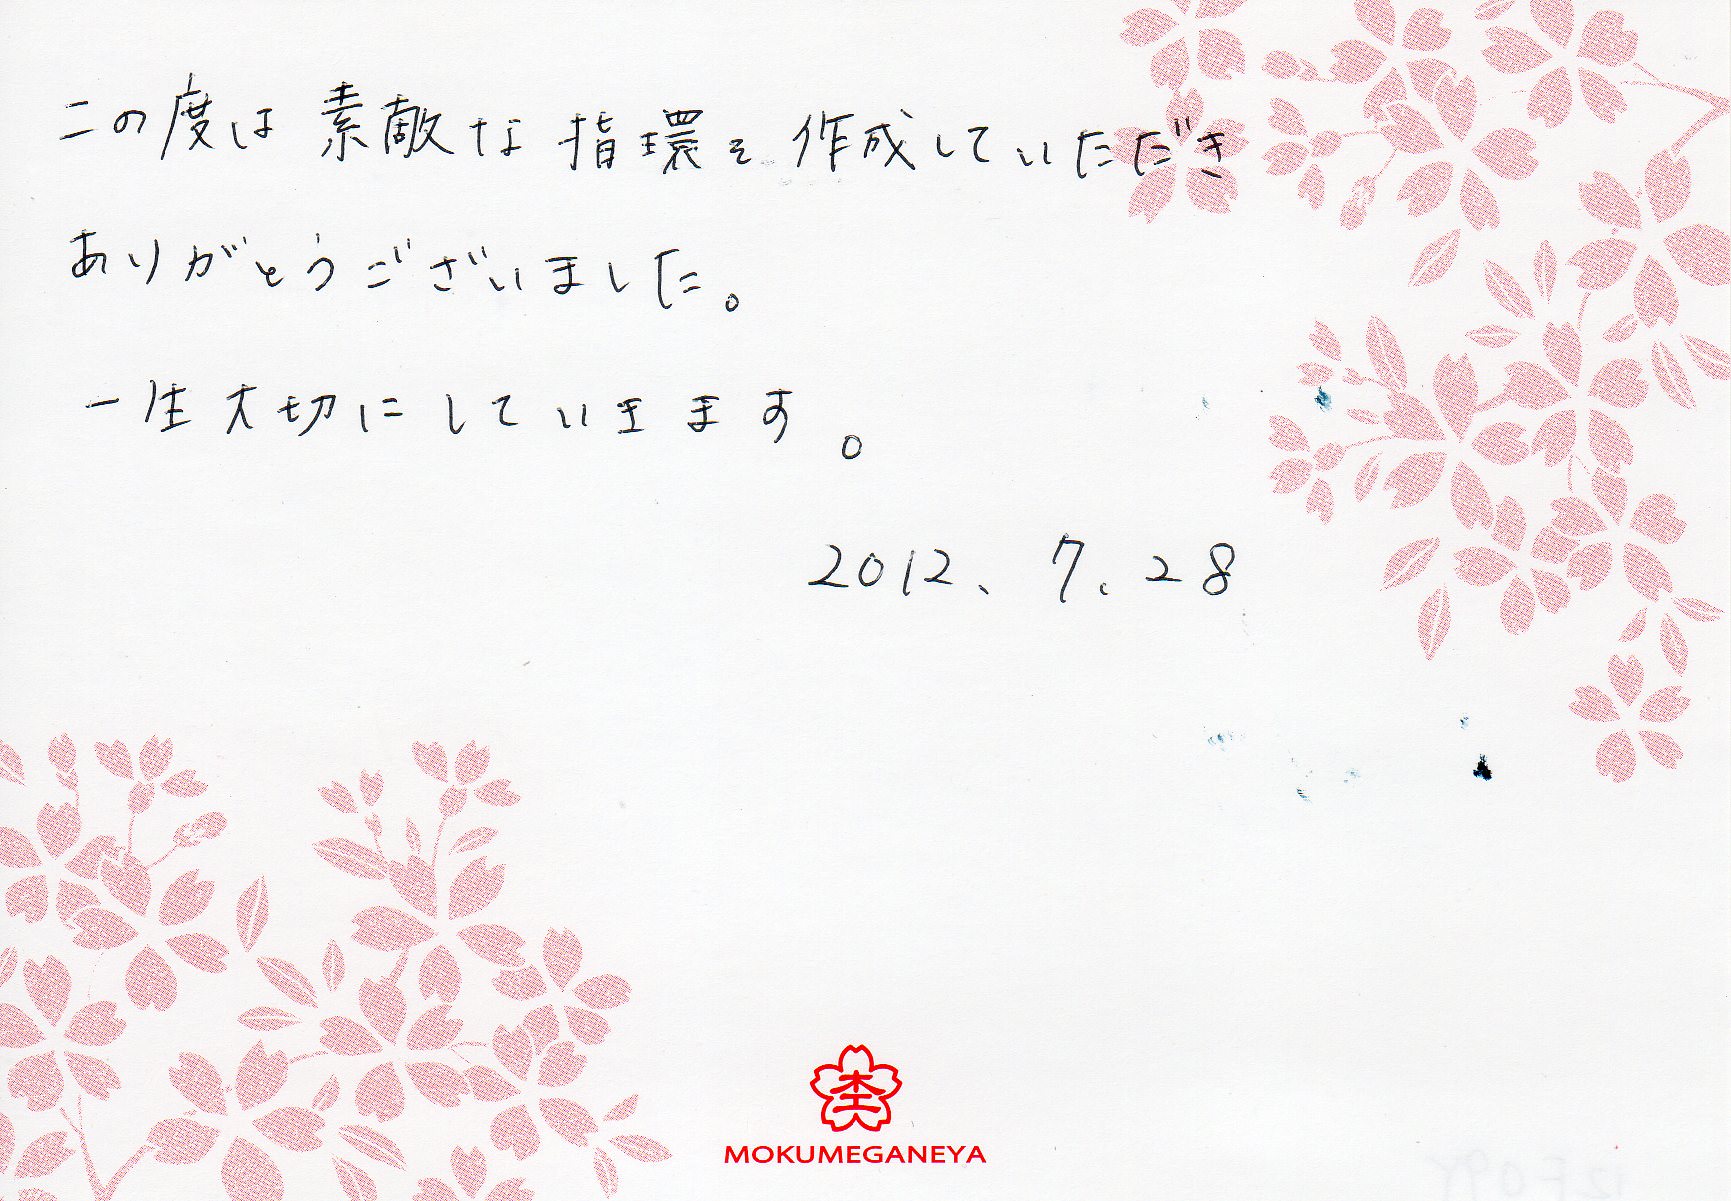 この度は素敵な指環を作成していただき
ありがとうございました。
一生大切にしていきます。
2012、7、28
MOKUMEGANEYA